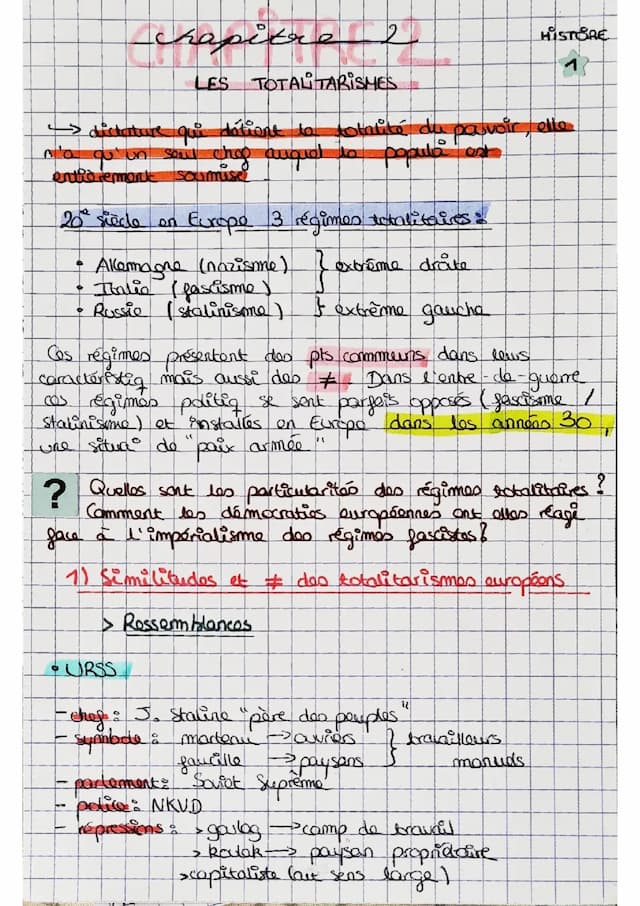 CHAPITRE 2
chapitre 2
HISTOIRE
1
LES TOTALITARISMES
↳ dictature qui détient la totalité du pouvoir, elle
n'a qu'un seul chef auquel la populå est
entièrement soumise.
20e siècle en Europe 3 régimes totalitaires :
• Allemagne (nazisme) } extrême droite
• Italie (fascisme)
• Russie (stalinisme) } extrême gauche
Ces régimes présentent des pts commeuns dans leurs
caractéristiq mais aussi des ≠. Dans l'entre-de-guerre
ces régimes politiq se sont parfois opposés (fascisme /
stalinisme) et installés en Europe dans les années 30,
une situa° de "paix armée"
? Quelles sont les particularités des régimes totalitaires ?
Comment les démocraties européennes ont elles réagi
face à l'impérialisme des régimes fascistes ?
1) Similitudes et ≠ des totalitarismes européens
> Ressemblances
• URSS
- chef : J. Staline "père des peuples"
- symbole : marteau → ouvriers } travailleurs
faucille → paysans manuels
- parlement : Soviet Suprême
- police : NKVD
- répressions : > goulag → camp de travail
> koulak → paysan propriétaire
> capitaliste (au sens large)